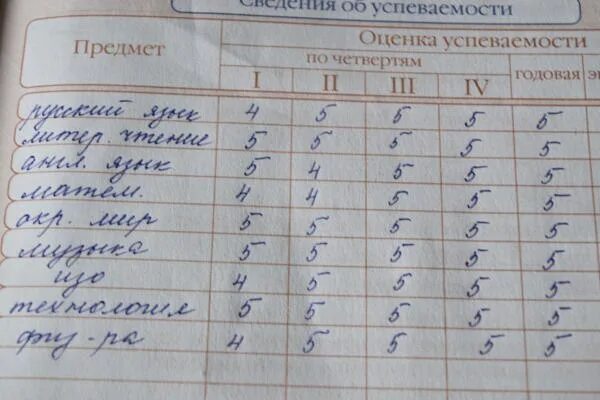 Сведения об успеваемости
Предмет
Оценка успеваемости
по четвертям
годовая
I II III IV
русский язык 4 5 5 5 5
литер. чтение 5 5 5 5 5
англ. язык 5 4 5 5 5
матем. 4 4 5 5 5
окр. мир 5 5 5 5 5
музыка 5 5 5 5 5
изо 4 5 5 5 5
технология 5 5 5 5 5
физ-ра 4 5 5 5 5